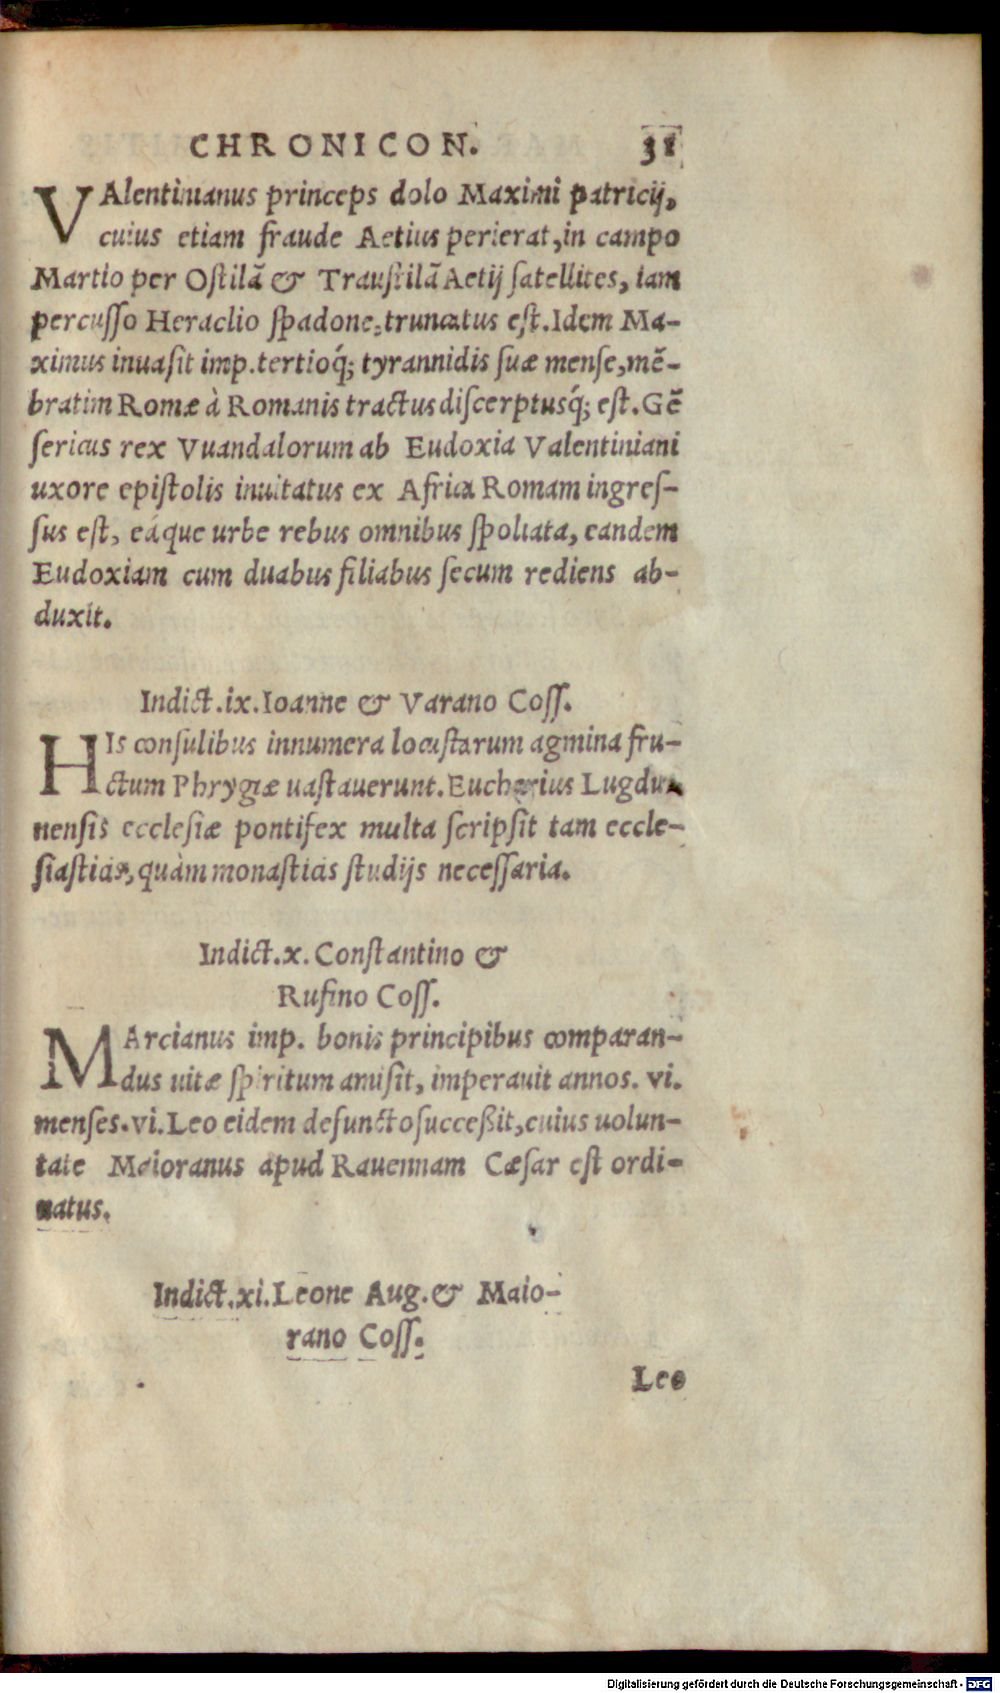 CHRONICON. 31
VAlentinianus princeps dolo Maximi patricij,
cuius etiam fraude Aetius perierat, in campo
Martio per Ostilã & Traustilã Aetij satellites, iam
percusso Heraclio spadone, truncatus est. Idem Ma-
ximus inuasit imp. tertioq́; tyrannidis suæ mense, mẽ-
bratim Romæ à Romanis tractus discerptusq́; est. Gẽ
sericus rex Vuandalorum ab Eudoxia Valentiniani
uxore epistolis inuitatus ex Africa Romam ingres-
sus est, eáque urbe rebus omnibus spoliata, eandem
Eudoxiam cum duabus filiabus secum rediens ab-
duxit.
Indict. ix. Ioanne & Varano Coss.
HIs consulibus innumera locustarum agmina fru-
ctum Phrygiæ uastauerunt. Eucherius Lugdu
nensis ecclesiæ pontifex multa scripsit tam eccle-
siasticis, quàm monasticis studijs necessaria.
Indict. x. Constantino &
Rufino Coss.
MArcianus imp. bonis principibus comparan-
dus uitæ spiritum amisit, imperauit annos. vi.
menses. vi. Leo eidem defuncto succeßit, cuius uolun-
tate Maioranus apud Rauennam Cæsar est ordi-
natus.
Indict. xi. Leone Aug. & Maio-
rano Coss.
Leo
Digitalisierung gefördert durch die Deutsche Forschungsgemeinschaft - DFG